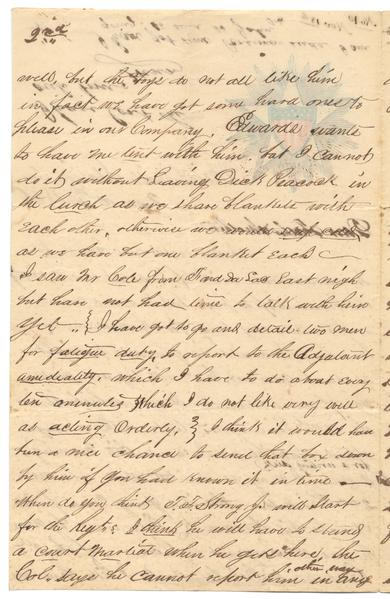 2nd
well, but the boys do not all like him
in fact we have got some hard ones to
please in our Company. Edwards wants
to have me tent with him. but I cannot
do it without Leaving Dick Peacock in
the lurch as we share blankets with
each other, otherwise we
as we have but one blanket each
I saw Mr Cole from Fond du Lac last nigh
but have not had time to talk with him
yet .. I have got to go and detail two men
for fatigue duty, to report to the Adjutant
amediatly. which I have to do about every
ten minutes which I do not like very well
as acting Orderly. I think it would hav
bin a nice chance to send that box down
by him if you had known it in time —
When do you think T. F. Strong Jr will start
for the Regt. I think he will have to stand
a court Martial when he gets here, the
Col. says he cannot report him in any
other way